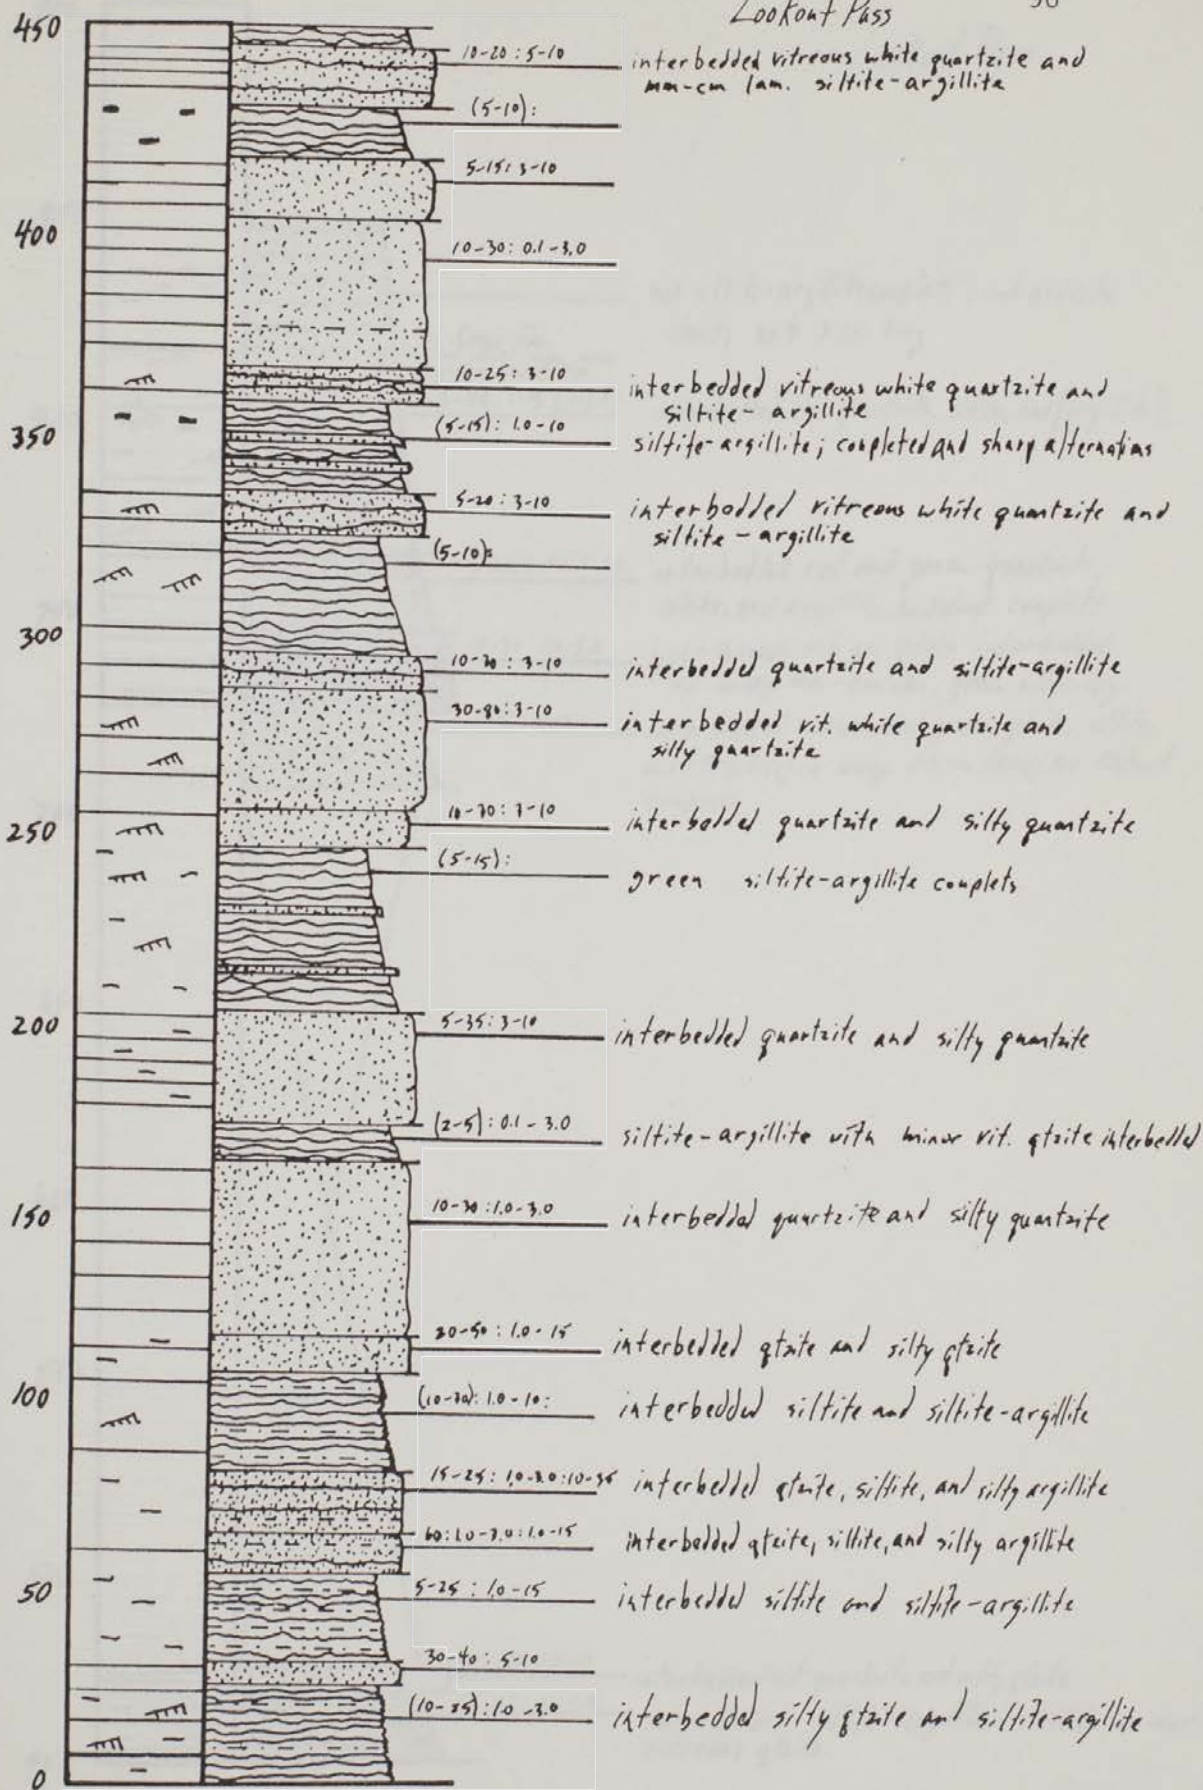 Lookout Pass
450
10-20 : 5-10 interbedded vitreous white quartzite and
mm-cm lam. siltite-argillite
(5-10):
5-15: 3-10
400
10-30: 0.1-3.0
10-25: 3-10 interbedded vitreous white quartzite and
siltite-argillite
350
(5-15): 1.0-10 siltite-argillite; coupleted and sharp alternations
5-20: 3-10 interbedded vitreous white quartzite and
siltite-argillite
(5-10):
300
3-10 interbedded quartzite and siltite-argillite
30-80: 3-10 interbedded vit. white quartzite and
silty quartzite
250
3-10 interbedded quartzite and silty quartzite
(5-15):
green siltite-argillite couplets
200
5-35: 3-10 interbedded quartzite and silty quartzite
(2-5): 0.1-3.0 siltite-argillite with minor vit. qtzite interbedded
150
10-30: 1.0-3.0 interbedded quartzite and silty quartzite
20-50: 1.0-15 interbedded qtzite and silty qtzite
100
1.0-10: interbedded siltite and siltite-argillite
15-25: interbedded qtzite, siltite, and silty argillite
60: 1.0-3.0: 1.0-15 interbedded qtzite, siltite, and silty argillite
50
5-25: 1.0-15 interbedded siltite and siltite-argillite
30-40: 5-10
(10-25): 1.0-3.0 interbedded silty qtzite and siltite-argillite
0